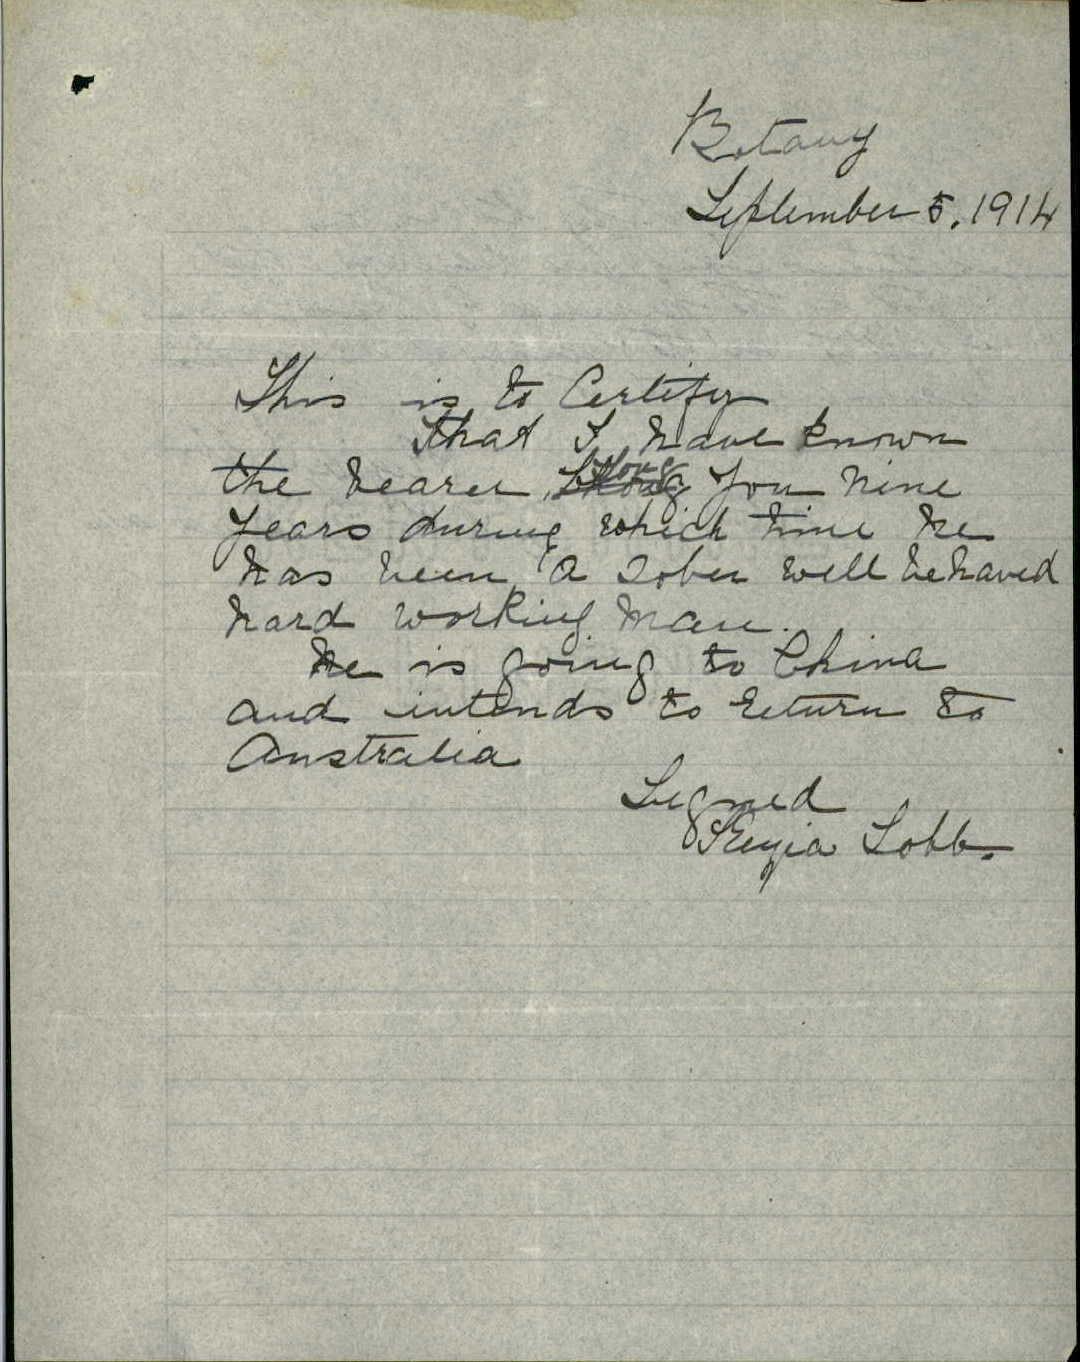 Botany
September 5, 1914
This is to Certify
that I have known
the bearer Hong You nine
years during which time he
has been a sober well behaved
hard working man.
He is going to China
and intends to return to
Australia
Signed
Kezia Lobb.